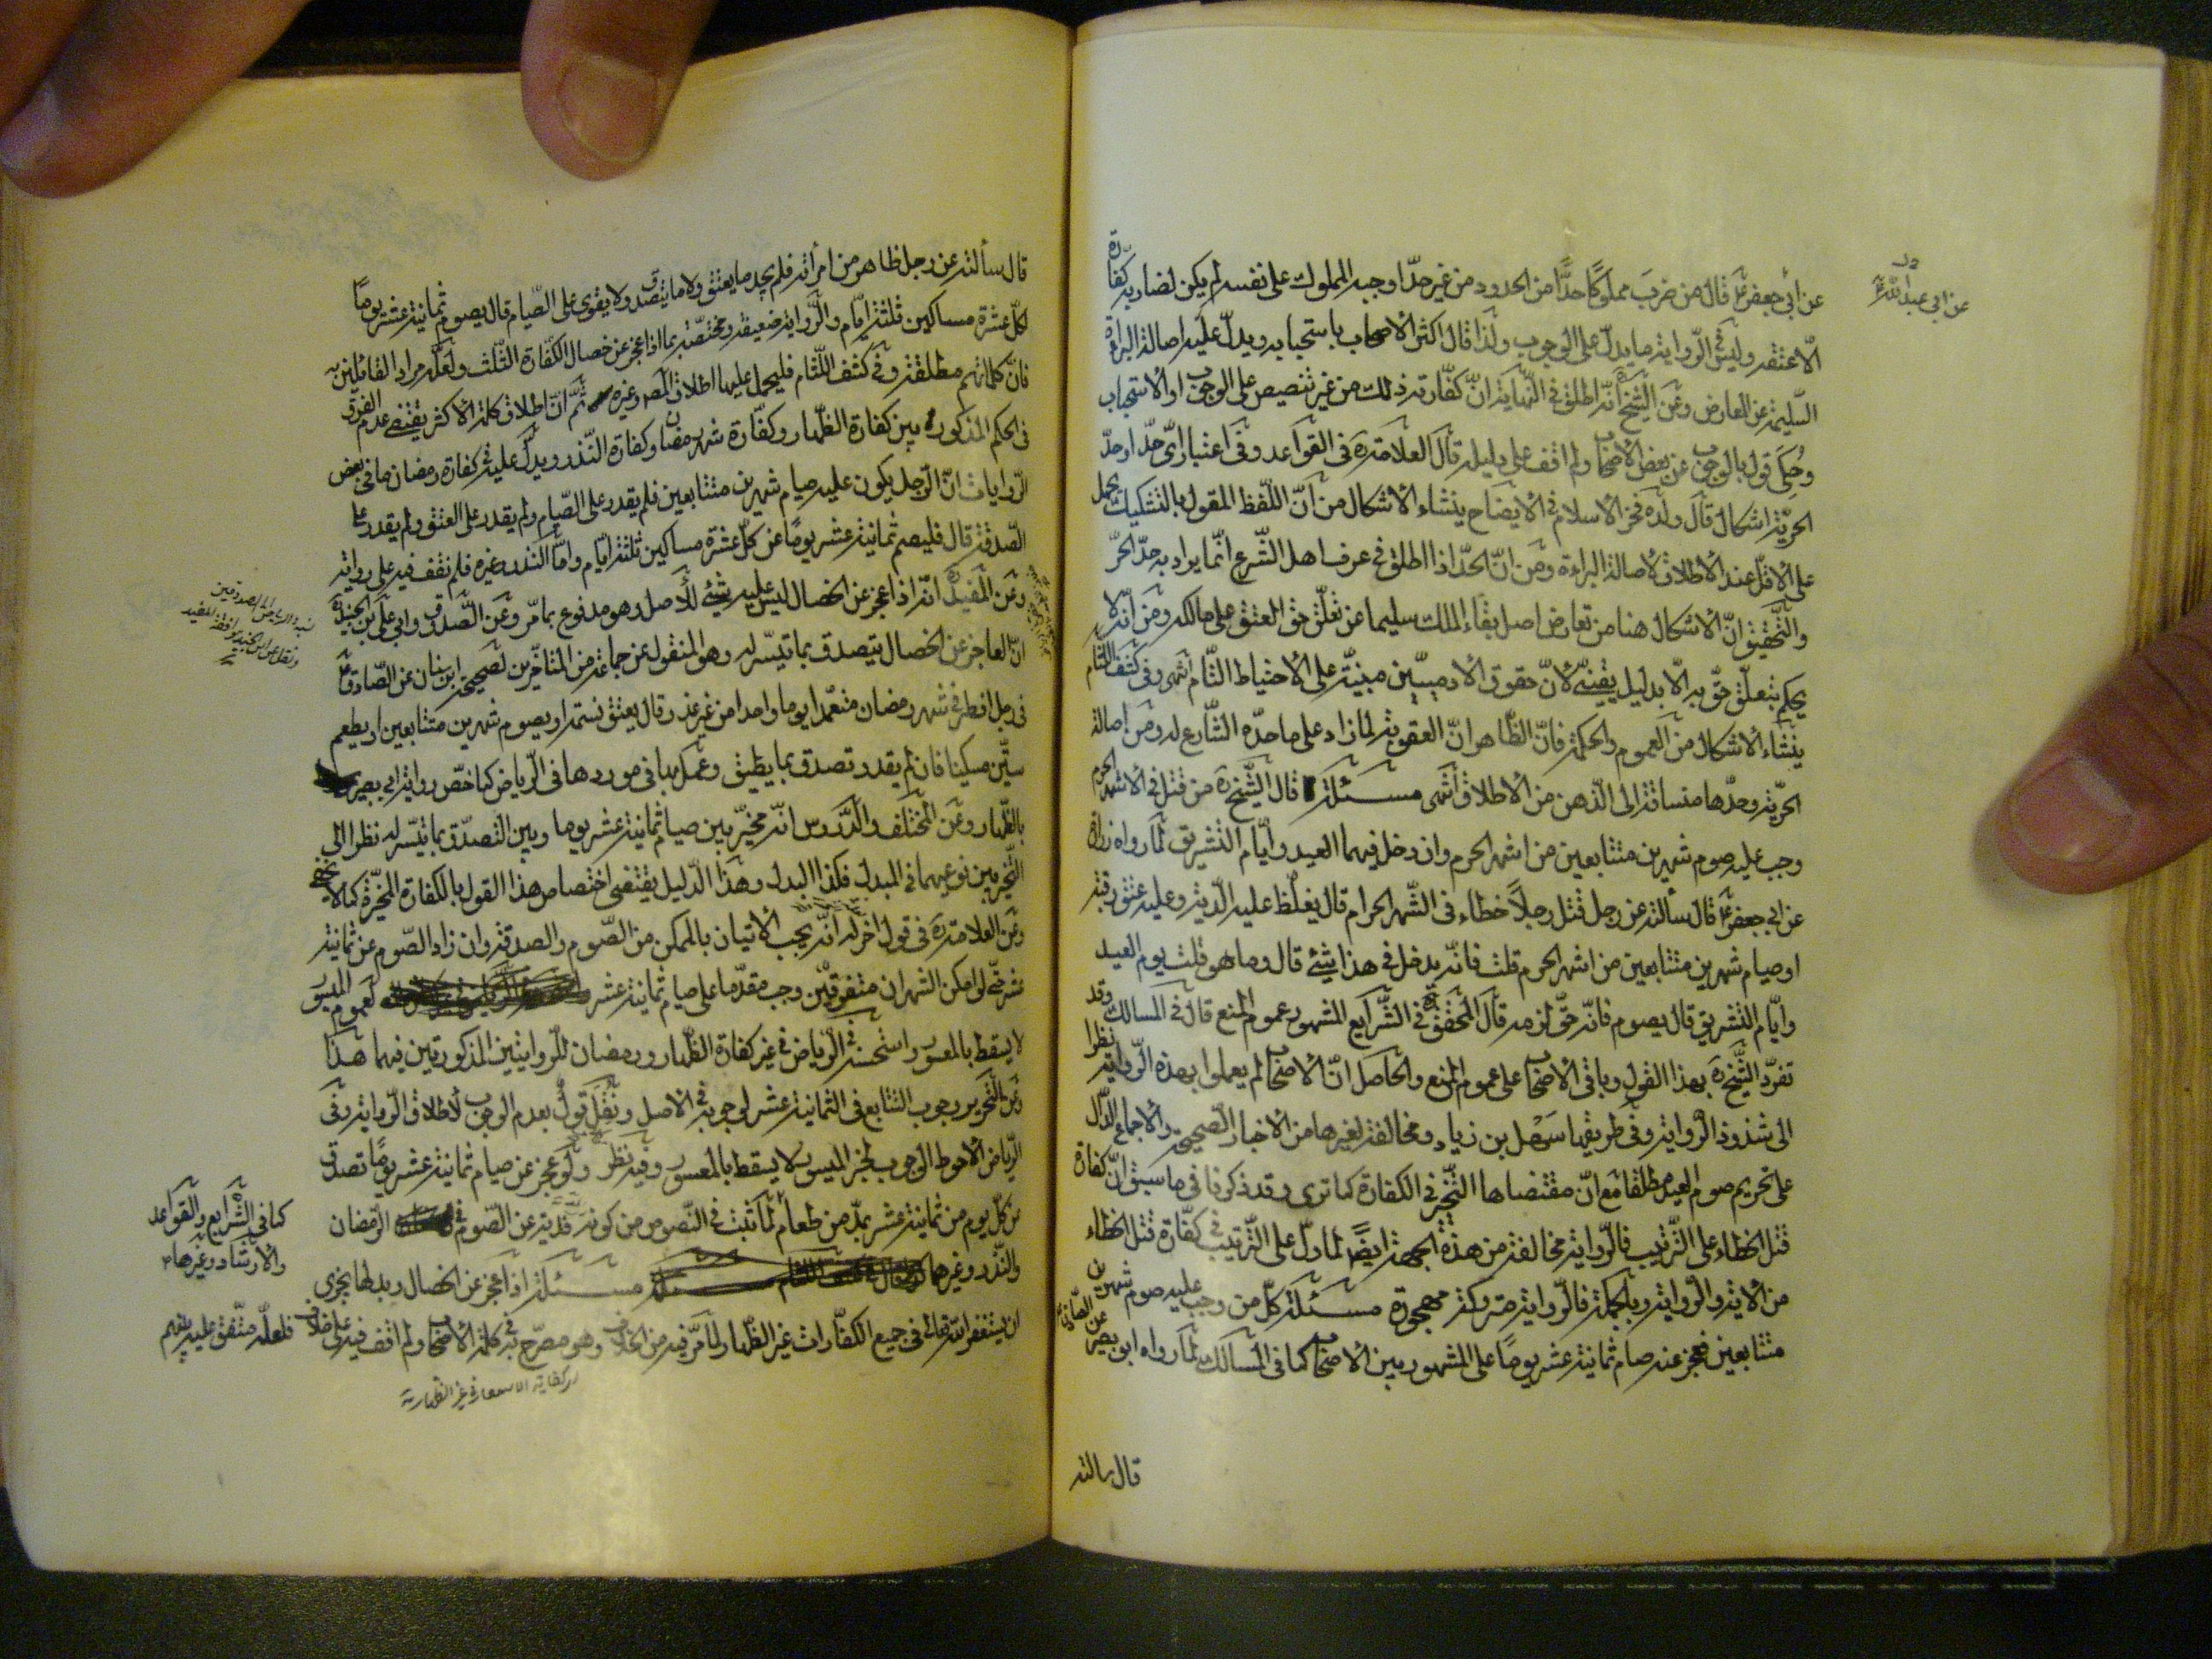 عن ابي عبدالله ع
عن ابي جعفر ع قال من ضرب مملوكا حدّا من الحدود من غير حدّ اوجبه المملوك على نفسه لم يكن لضاربه كفّارة
الّا عتقه وليس في الرّواية ما يدلّ على الوجوب ولذا قال اكثر الاصحاب باستحبابه ويدلّ عليه اصالة البراءة
السّليمة عن المعارض وعن الشيخ انّه اطلق في النّهاية انّ كفّارته ذلك من غير تنصيص على الوجوب او الاستحباب
وحكى قول بالوجوب عن بعض الاصحاب ولم اقف على دليله قال العلامة ره في القواعد وفي اعتبار ايّ حدّ او حدّ
الحريّة اشكال قال ولده فخر الاسلام في الايضاح ينشاء الاشكال من انّ اللّفظ المقول بالتشكيك يحمل
على الاقلّ عند الاطلاق لاصالة البراءة ومن انّ الحدّ اذا اطلق في عرف اهل الشّرع انّما يراد به حدّ الحرّ
والتّحقيق انّ الاشكال هنا من تعارض اصل بقاء الملك سليما عن تعلّق حق العتق على مالكه ومن انّه لا
يحكم بتعلّق حقّ به الّا بدليل يقينيّ لانّ حقوق الادميّين مبنيّة على الاحتياط التّام انتهى وفي كشف اللثام
ينشاء الاشكال من العموم والحكمة فانّ الظّاهر انّ العقوبة لما زاد على ما حدّه الشّارع له ومن اصالة
الحريّة وحدّها متساقة الى الذّهن من الاطلاق انتهى مسئلة قال الشّيخ ره من قتل في الاشهر الحرم
وجب عليه صوم شهرين متتابعين من اشهر الحرم وان دخل فيهما العيد وايّام التّشريق لما رواه زرارة
عن ابي جعفر ع قال سألته عن رجل قتل رجلاً خطاء في الشّهر الحرام قال يغلّظ عليه الدّية وعليه عتق رقبة
او صيام شهرين متتابعين من اشهر الحرم قلت فانّه يدخل في هذا شئ قال وما هو قلت يوم العيد
وايّام التّشريق قال يصوم فانّه حقّ لزمه قال المحقّق ره في الشّرايع المشهور عموم المنع قال في المسالك وقد
تفرّد الشّيخ ره بهذا القول وباقي الاصحاب على عموم المنع والحاصل انّ الاصحاب لم يعملوا بهذه الرّواية نظرا
الى شذوذ الرّواية وفي طريقها سهل بن زياد ومخالفته لغيرها من الاخبار الصّحيحة والاجماع الدّال
على تحريم صوم العيد مطلقا مع انّ مقتضاها التّخيّر في الكفارة كما ترى وقد ذكرنا في ما سبق انّ كفارة
قتل الخطاء على التّرتيب فالرّواية مخالفة من هذه الجهة ايضا لما دلّ على التّرتيب في كفّارة قتل الخطاء
من الاية والرّواية وبالجملة فالرّواية متروكة مهجورة مسئلة كلّ من وجب عليه صوم شهرين
متتابعين فعجز عنه صام ثمانية عشر يومًا على المشهور بين الاصحاب كما في المسالك لما رواه ابو بصير عن الصّادق
قال سالته
قال سألته عن رجل ظاهر من امرأته فلم يجد ما يعتق ولا ما يتصدق ولا يقوى على الصّيام قال يصوم ثمانية عشر يوما
لكلّ عشرة مساكين ثلثة ايّام والرّواية ضعيفة ومختصّة بما اذا عجز عن خصال الكفّارة الثّلث ولعلّه مراد القائلين به
فانّ كلماتهم مطلقة وفي كشف اللّثام فليحمل عليها اطلاق المصّ وغيره ثمّ انّ اطلاق كلمة الاكثر يقتضي عدم الفرق
في الحكم المذكور بين كفارة الظّهار وكفّارة شهر رمضان وكفارة النّذر ويدلّ عليه في كفارة رمضان ما في بعض
الرّوايات انّ الرّجل يكون عليه صيام شهرين متتابعين فلم يقدر على الصّيام ولم يقدر على العتق ولم يقدر على
الصّدقة قال فليصم ثمانية عشر يومًا عن كلّ عشرة مساكين ثلثة ايّام وامّا النّذر وغيره فلم نقف فيه على رواية
وعن المفيد انّه اذا عجز عن الخصال ليس عليه شئ للأصل وهو مدفوع بما مرّ وعن الصّدوق وابي علي بن الجنيد
انّ العاجز عن الخصال يتصدق بما تيسّر له وهو المنقول عن جماعة من المتأخّرين لصحيحة ابن سنان عن الصّادق ع
في رجل افطر في شهر رمضان متعمّدا يوما واحدا من غير عذر قال يعتق نسمة او يصوم شهرين متتابعين او يطعم
ستّين مسكينا فان لم يقدر تصدق بما يطيق وعمل بها في موردها في الرّياض كما خصّ رواية ابي بصير
بالظّهار وعن المختلف والدّروس انّه مخيّر بين صيام ثمانية عشر يوما وبين التّصدّق بما تيسّر له نظرا الى
التّخيّر بين نوعيهما في المبدل فكذا البدل وهذا الدّليل يقتضي اختصاص هذا القول بالكفارة المخيّرة كما لا يخفى
وعن العلامة ره في قول اخر له انّه يجب الأتيان بالممكن من الصّوم والصدقة وان زاد الصّوم عن ثمانية
عشر حتّى لو امكن الشهران متفرقين وجب مقدّما على صيام ثمانية عشر لعموم الميسور
لا يسقط بالمعسور واستحسنه في الرّياض في غير كفارة الظّهار ورمضان للرّوايتين المذكورتين فيهما هذا
وعن التّحرير وجوب التتابع في الثّمانية عشر لوجوبه في الاصل ونقل قول بعدم الوجوب لأطلاق الرّواية وفي
الرّياض الاحوط الوجوب لخبر الميسور لا يسقط بالمعسور وفيه نظر ولو عجز عن صيام ثمانية عشر يومًا تصدق
عن كلّ يوم من ثمانية عشر بمدّ من طعام لما ثبت في النّصوص من كونه فدية عن الصّوم في الرّمضان
والنّذر وغيرها مسئلة اذا عجز عن الخصال وبدلها يجزى
ان يستغفر الله تعالى في جميع الكفّارات غير الظّهار ولما مرّ فيه من الخلاف وهو مصرّح به في كلمة الأصحاب ولم اقف فيه على خلاف فلعلّه متّفق عليه بينهم
كما في الشّرايع والقواعد
والارشاد وغيرها